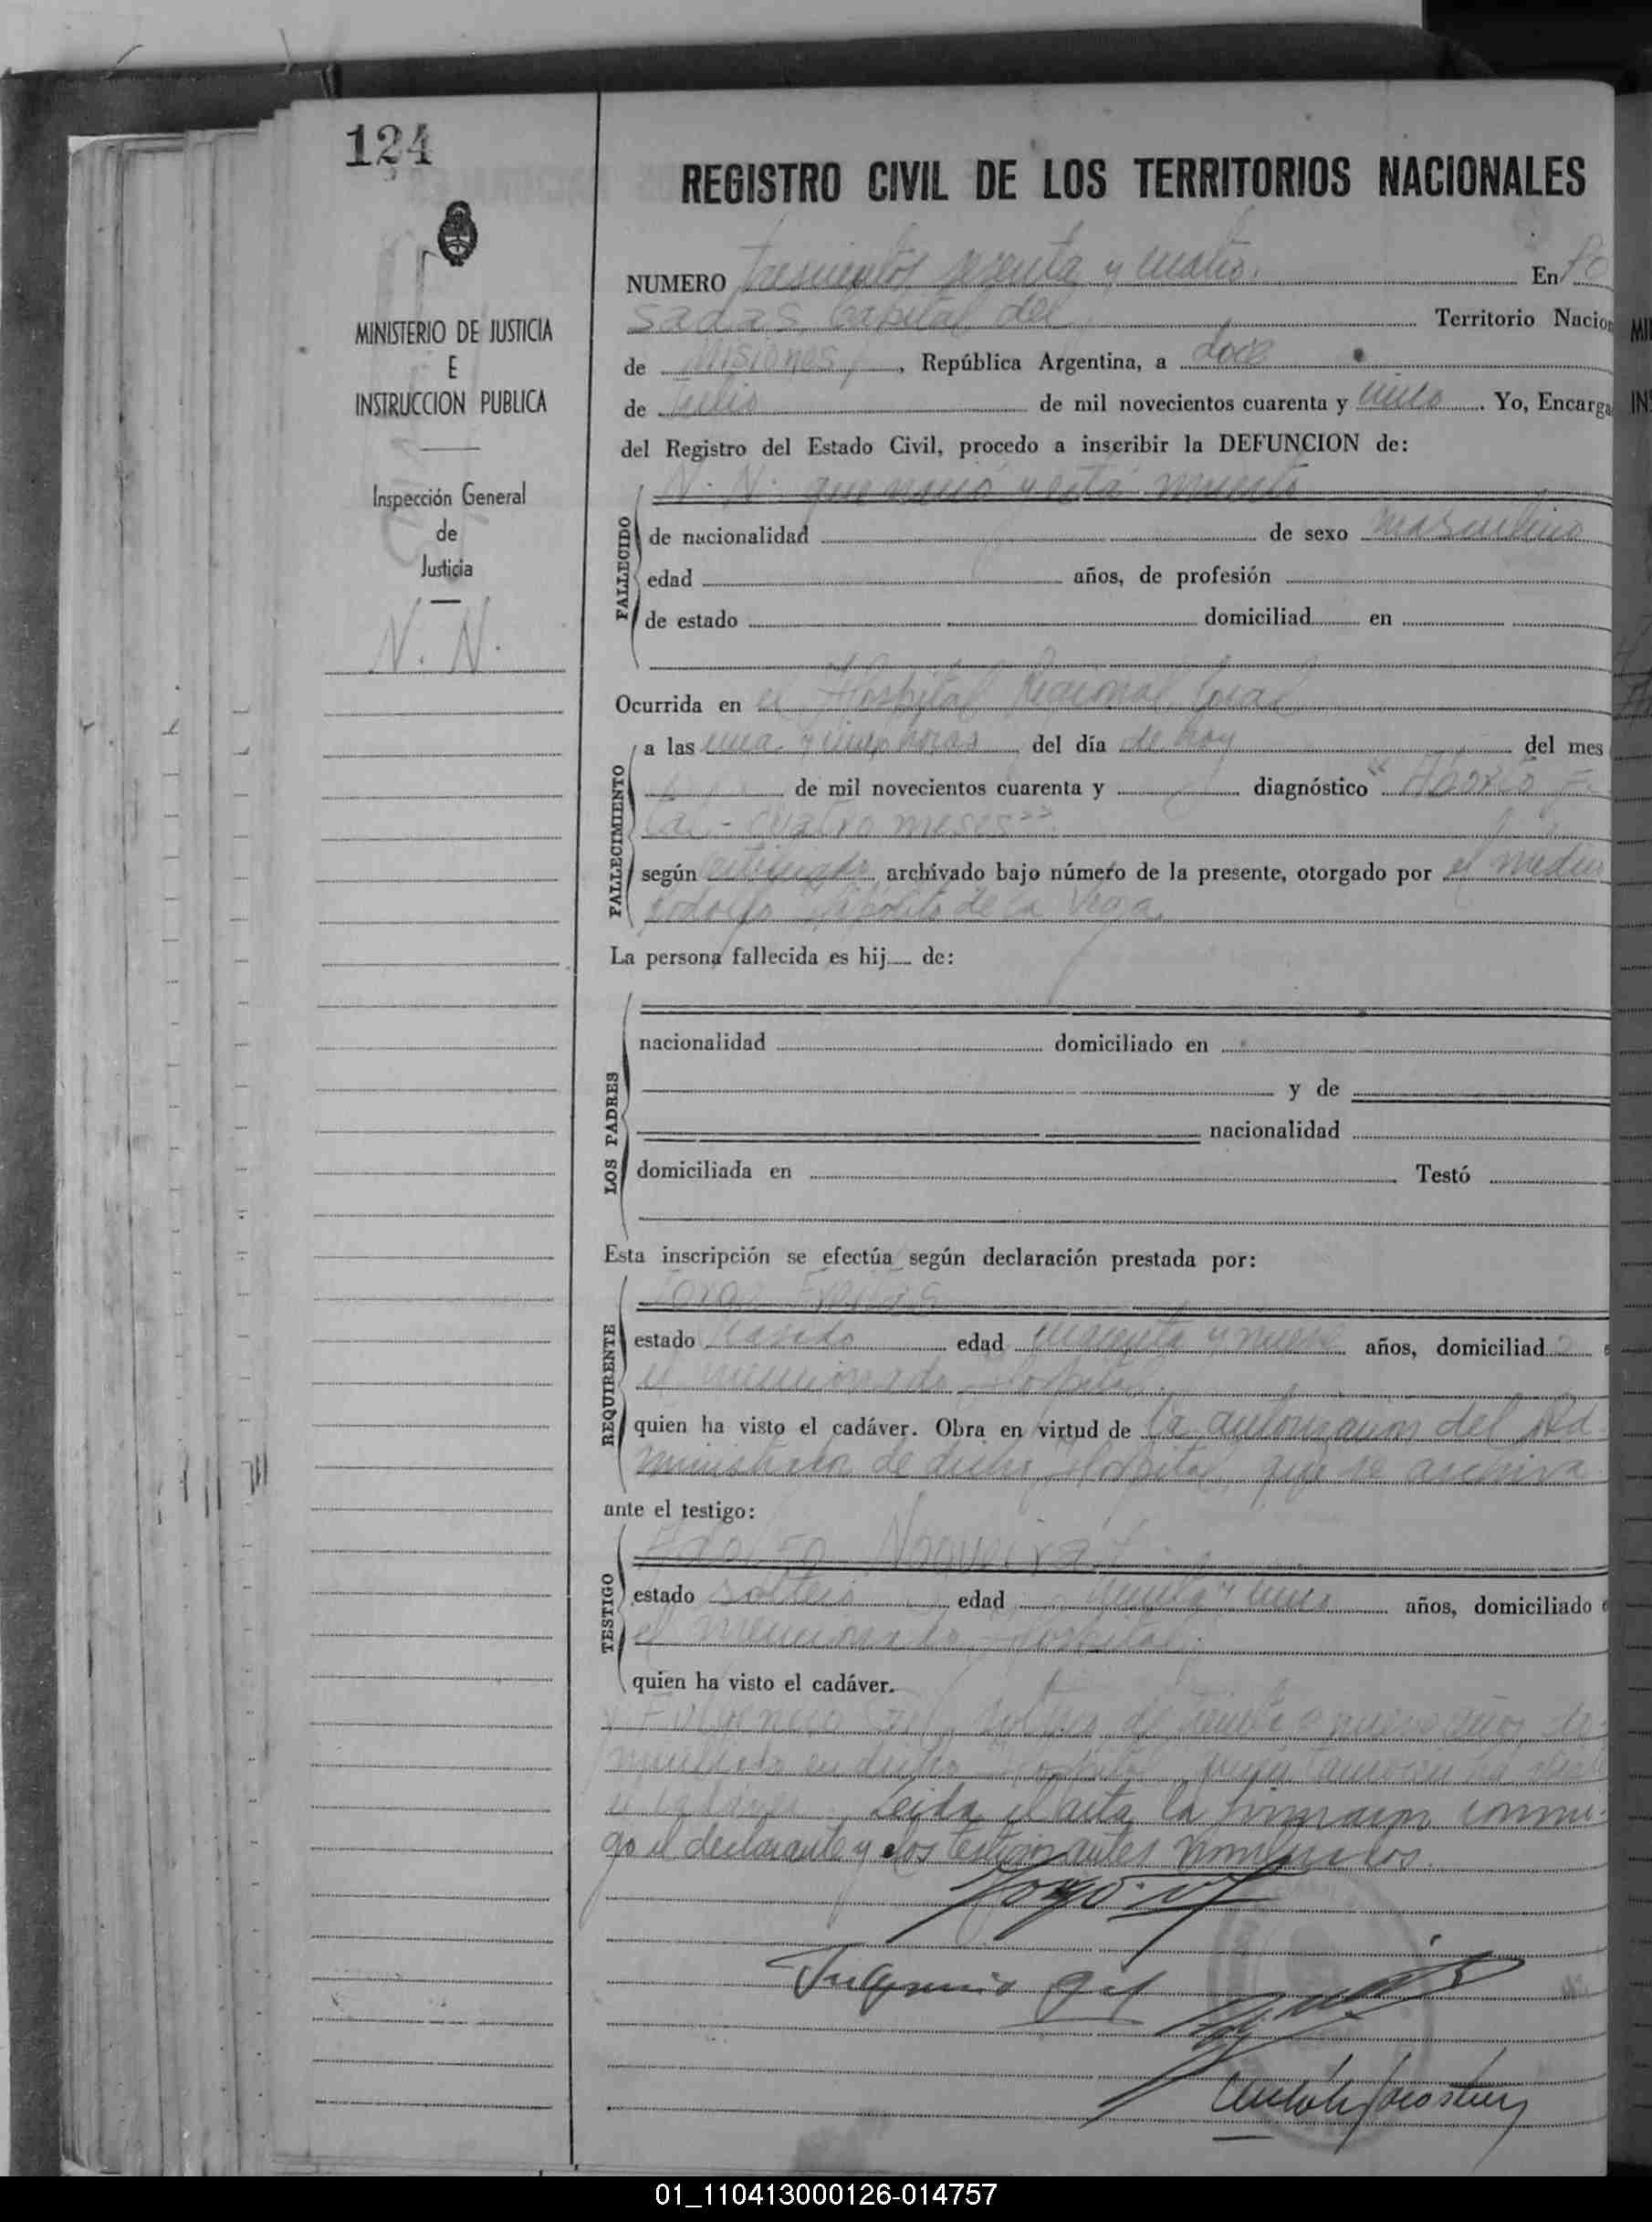 124
REGISTRO CIVIL DE LOS TERRITORIOS NACIONALES
MINISTERIO DE JUSTICIA
E
INSTRUCCION PUBLICA
Inspección General
de
Justicia
N. N.
NUMERO trescientos sesenta y cuatro. En Po
sadas capital del Territorio Nacion
de Misiones, República Argentina, a doce
de Julio de mil novecientos cuarenta y cinco. Yo, Encarga
del Registro del Estado Civil, procedo a inscribir la DEFUNCION de:
N. N. que nació y está muerto
FALLECIDO
de nacionalidad de sexo masculino
edad años, de profesión
de estado domiciliad en
Ocurrida en el Hospital Regional local
FALLECIMIENTO
a las una y cinco horas del día de hoy del mes
de mil novecientos cuarenta y diagnóstico "Aborto Fe
tal - cuatro meses"
según certificado archivado bajo número de la presente, otorgado por el medico
Rodolfo Hipólito de la Vega.
La persona fallecida es hij de:
LOS PADRES
nacionalidad domiciliado en
y de
nacionalidad
domiciliada en Testó
Esta inscripción se efectúa según declaración prestada por:
REQUIRENTE
Jorge
estado casado edad cuarenta y nueve años, domiciliad o
el mencionado Hospital.
quien ha visto el cadáver. Obra en virtud de la autorización del Ad
ministrador de dicho Hospital, que se archiva
ante el testigo:
TESTIGO
Adolfo
estado soltero edad treinta y cinco años, domiciliado
el mencionado Hospital.
quien ha visto el cadáver.
y Fulgencio soltero de treinta y nueve años, do
miciliado en dicho Hospital, quien también ha visto
el cadáver. Leida el acta la firmaron conmi-
go el declarante y los testimoniantes nombrados.
Fulgencio
01_110413000126-014757